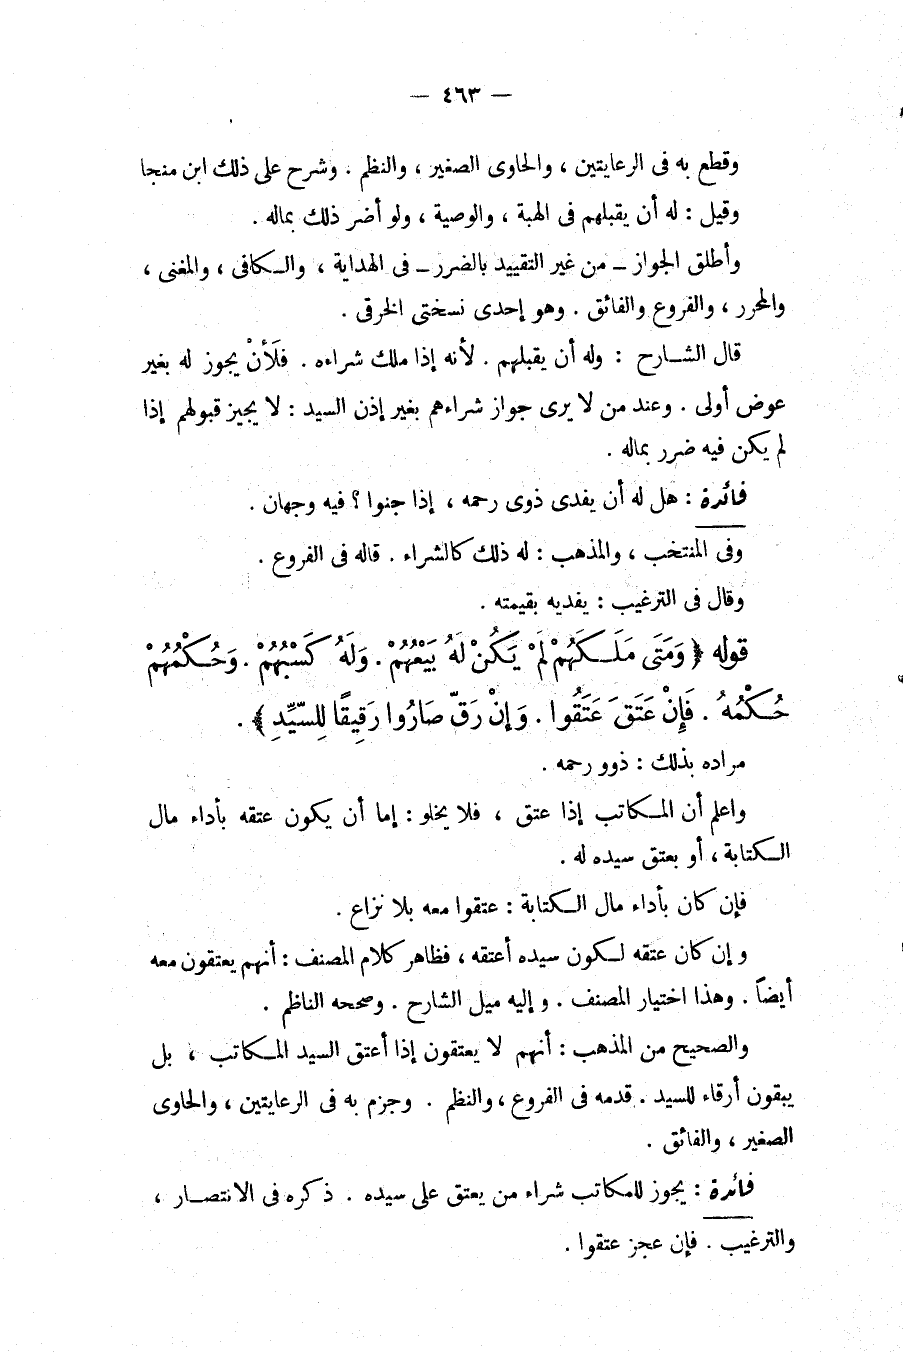 — ٤٦٣ —
وقطع به فى الرعايتين ، والحاوى الصغير ، والنظم . وشرح على ذلك ابن منجا
وقيل : له أن يقبلهم فى الهبة ، والوصية ، ولو أضر ذلك بماله .
وأطلق الجواز – من غير التقييد بالضرر – فى الهداية ، والكافى ، والمغنى ،
والمحرر ، والفروع والفائق . وهو إحدى نسختى الخرقى .
قال الشارح : وله أن يقبلهم . لأنه إذا ملك شراءه . فلَأنْ يجوز له بغير
عوض أولى . وعند من لا يرى جواز شراءهم بغير إذن السيد : لا يجيز قبولهم إذا
لم يكن فيه ضرر بماله .
فائدة : هل له أن يفدى ذوى رحمه ، إذا جنوا ؟ فيه وجهان .
وفى المنتخب ، والمذهب : له ذلك كالشراء . قاله فى الفروع .
وقال فى الترغيب : يفديه بقيمته .
قوله ﴿ وَمَتَى مَلَكَهُمْ لَمْ يَكُنْ لَهُ بَيْعُهُمْ . وَلَهُ كَسْبُهُمْ . وَحُكْمُهُمْ
حُكْمُهُ . فَإِنْ عَتَقَ عَتَقُوا . وَإِنْ رَقَّ صَارُوا رَقِيقًا لِلسَّيِّدِ ﴾ .
مراده بذلك : ذوو رحمه .
واعلم أن المكاتب إذا عتق ، فلا يخلو : إما أن يكون عتقه بأداء مال
الكتابة ، أو بعتق سيده له .
فإن كان بأداء مال الكتابة : عتقوا معه بلا نزاع .
وإن كان عتقه لكون سيده أعتقه ، فظاهر كلام المصنف : أنهم يعتقون معه
أيضاً . وهذا اختيار المصنف . وإليه ميل الشارح . وصححه الناظم .
والصحيح من المذهب : أنهم لا يعتقون إذا أعتق السيد المكاتب ، بل
يبقون أرقاء للسيد . قدمه فى الفروع ، والنظم . وجزم به فى الرعايتين ، والحاوى
الصغير ، والفائق .
فائدة : يجوز للمكاتب شراء من يعتق على سيده . ذكره فى الانتصار ،
والترغيب . فإن عجز عتقوا .